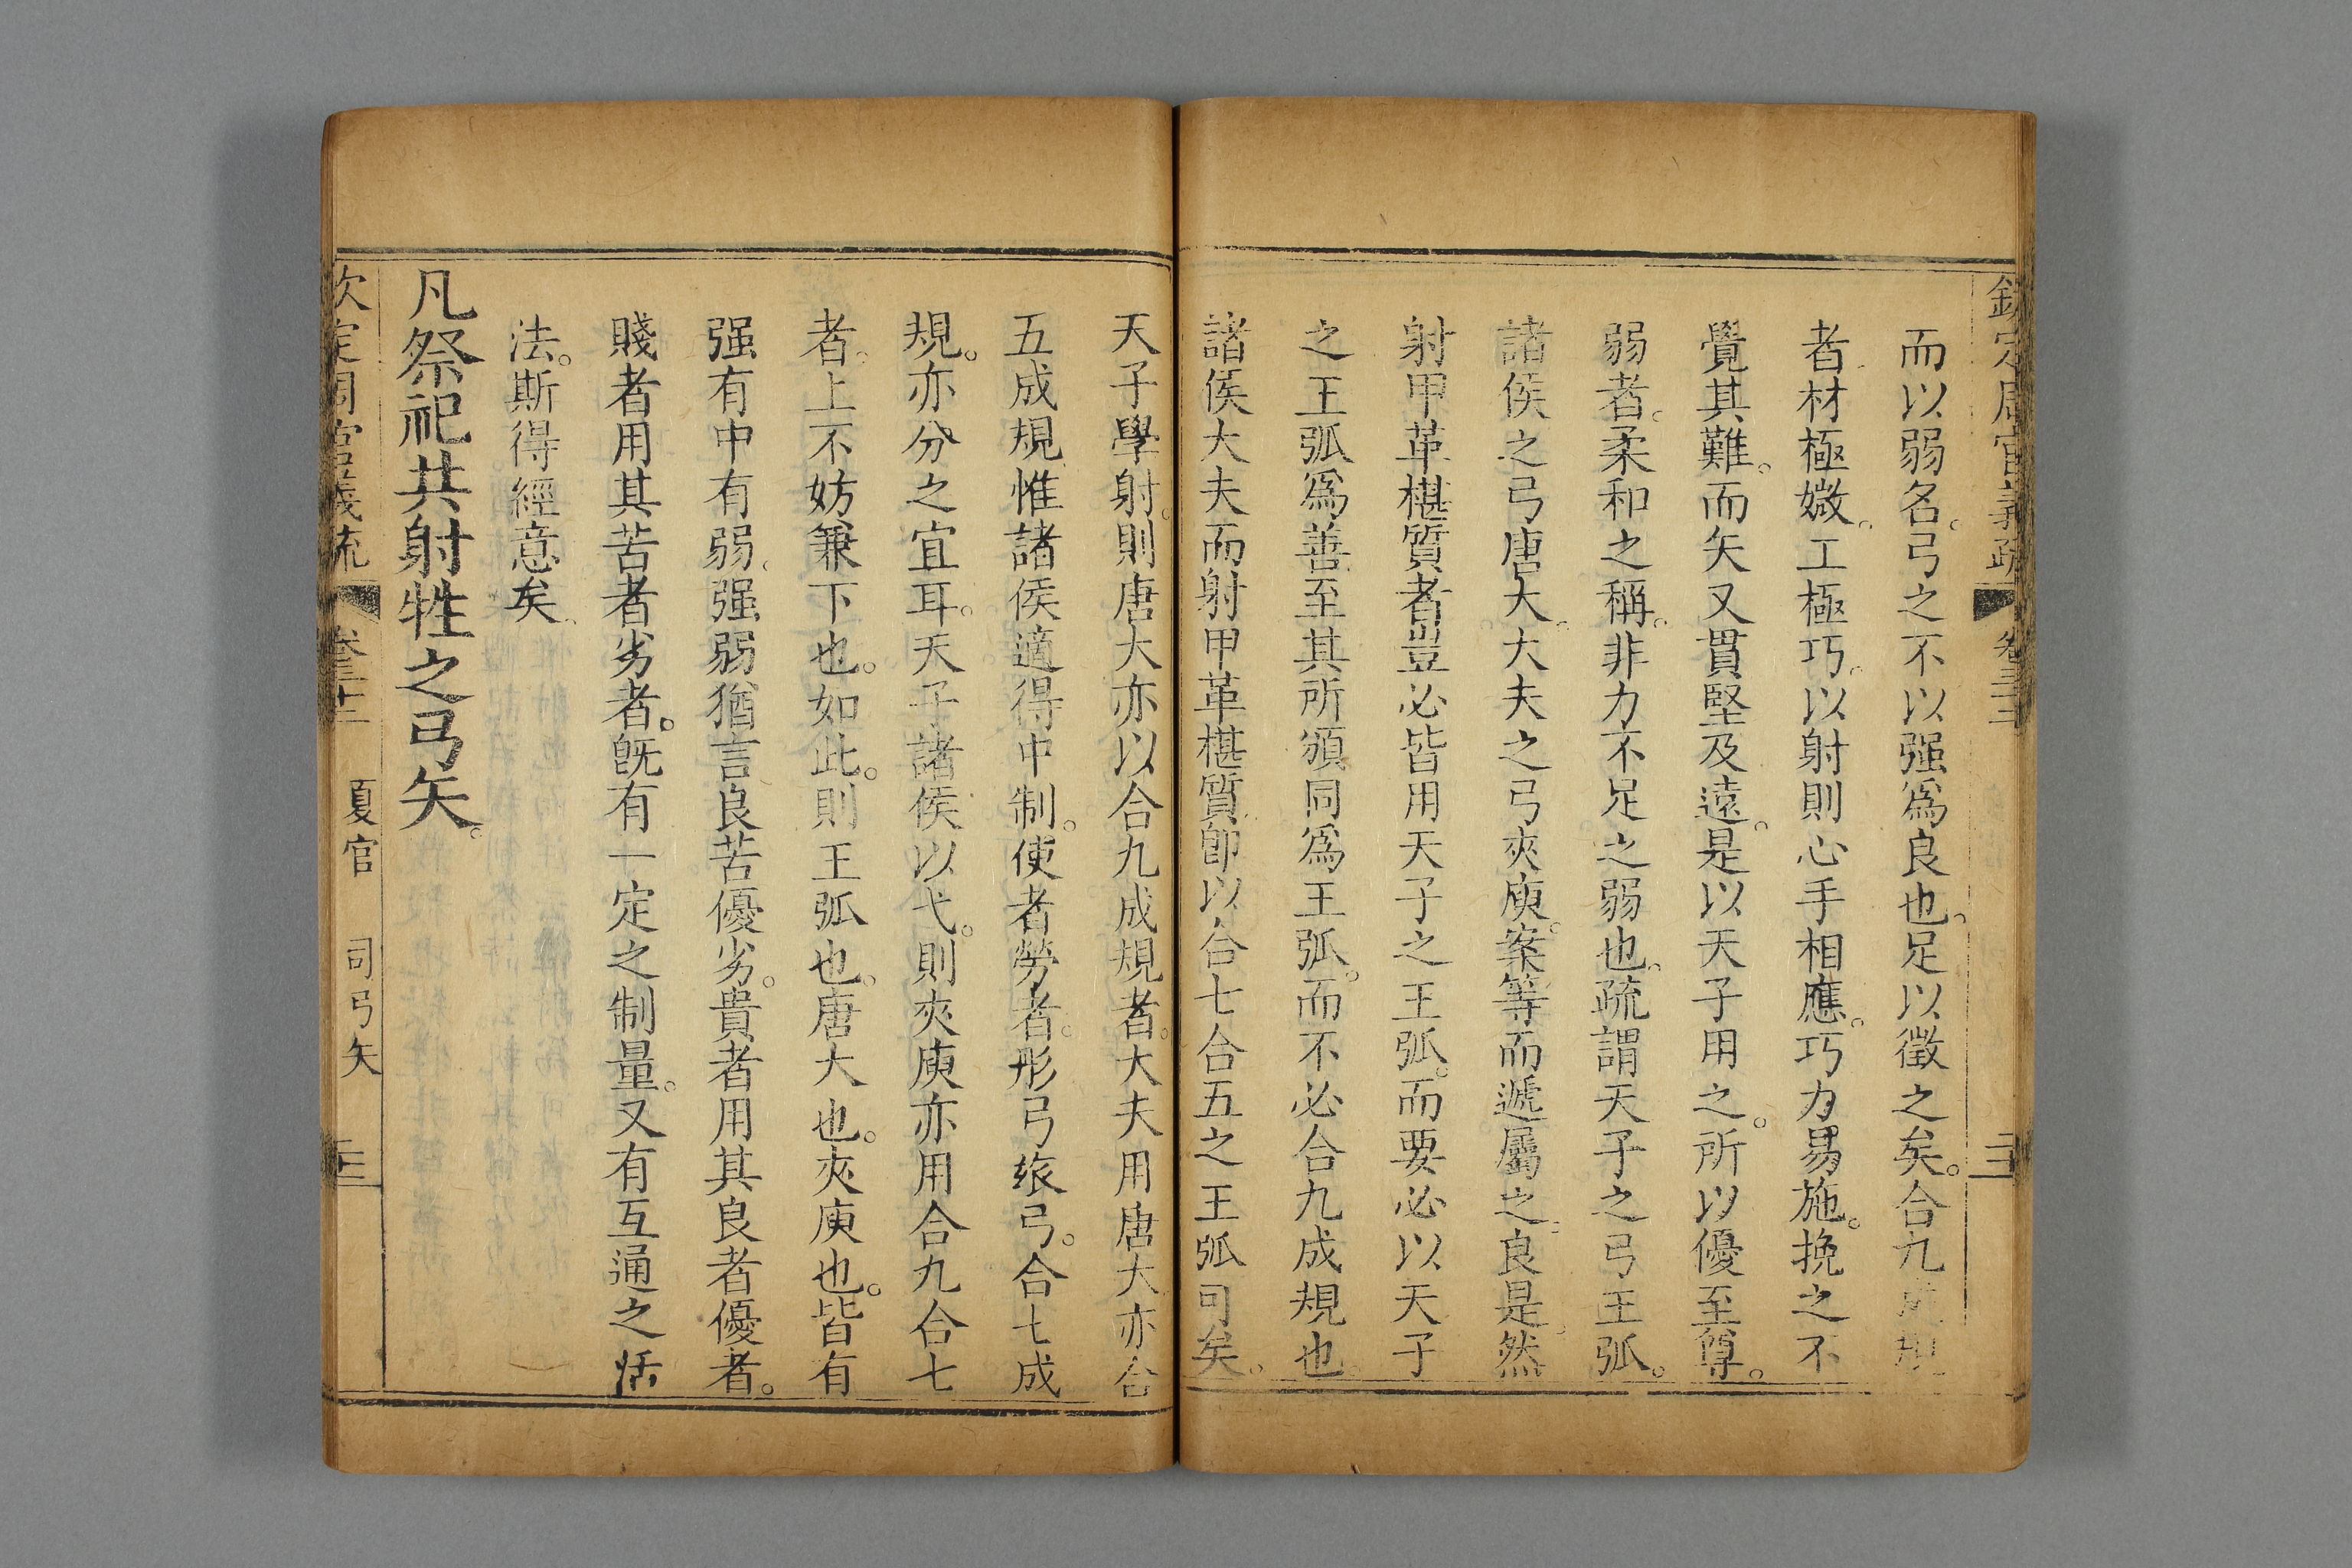 欽定周官義疏 卷三十二
而以弱名。弓之不以强爲良也。足以徵之矣。合九成規
者材極媺。工極巧。以射則心手相應。巧力易施。挽之不
覺其難。而矢又貫堅及遠。是以天子用之。所以優至尊。
弱者。柔和之稱。非力不足之弱也。疏謂天子之弓王弧。
諸侯之弓唐大。大夫之弓夾庾。案等而遞屬之。良是。然
射甲革椹質者豈必皆用天子之王弧。而要必以天子
之王弧爲善。至其所頒同爲王弧。而不必合九成規也。
諸侯大夫而射甲革椹質卽以合七合五之王弧可矣。
天子學射。則唐大亦以合九成規者。大夫用唐大亦合
五成規。惟諸侯適得中制。使者勞者。彤弓旅弓。合七成
規。亦分之宜耳。天子諸侯以弋。則夾庾亦用合九合七
者。上不妨兼下也。如此。則王弧也。唐大也。夾庾也。皆有
强有中有弱。强弱猶言良苦優劣。貴者用其良者優者。
賤者用其苦者劣者。旣有一定之制量。又有互通之活
法。斯得經意矣。
凡祭祀共射牲之弓矢。
欽定周官義疏 卷三十二 夏官 司弓矢